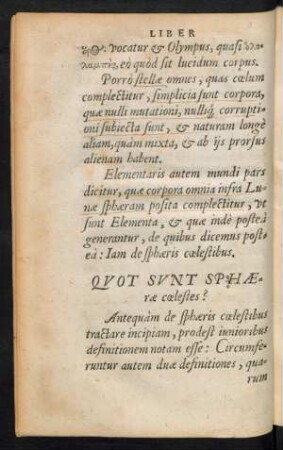 LIBER
vocatur & Olympus, quasi ὁλο-
λαμπὴς, eò quòd sit lucidum corpus.
Porrò stellæ omnes, quas cœlum
complectitur, simplicia sunt corpora,
quæ nulli mutationi, nulliq́; corrupti-
oni subiecta sunt, & naturam longè
aliam, quàm mixta, & ab ijs prorsus
alienam habent.
Elementaris autem mundi pars
dicitur, quæ corpora omnia infra Lu-
næ sphæram posita complectitur, vt
sunt Elementa, & quæ inde posteà
generantur, de quibus dicemus post-
eà: Iam de sphæris cœlestibus.
QVOT SVNT SPHÆ-
ræ cœlestes?
Antequàm de sphæris cœlestibus
tractare incipiam, prodest iunioribus
definitionem notam esse: Circumfe-
runtur autem duæ definitiones, qua-
rum